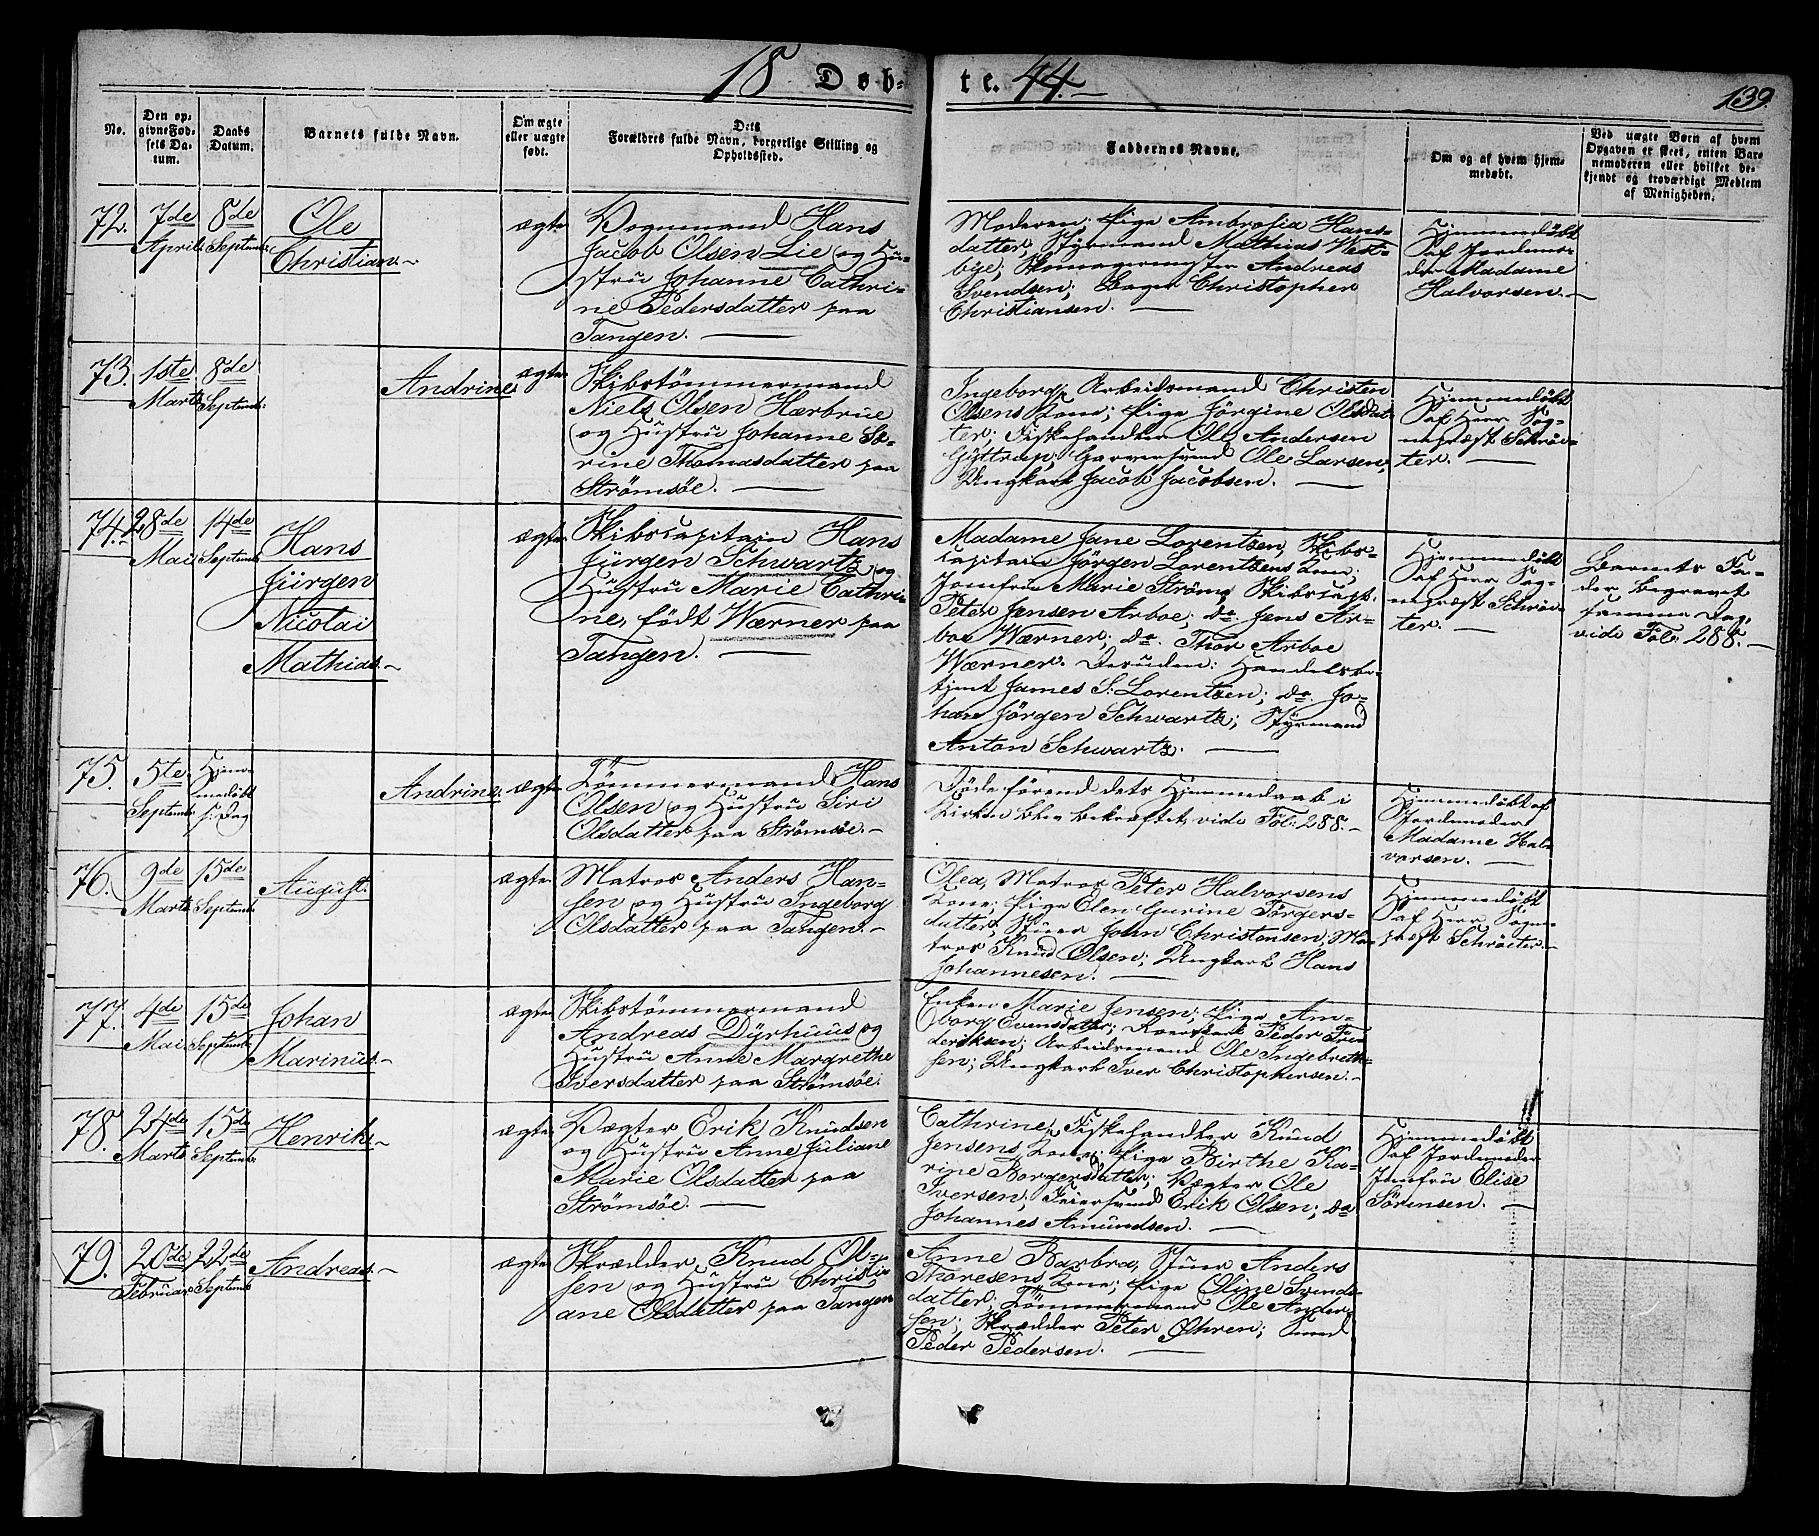 18 Døb-
te. 44.
139.
No.
Den op-
givne Fød-
sels Da-
tum.
Daabs
Datum.
Barnets fulde Navn.
Om ægte
eller uægte
født.
Dets
Forældres fulde Navn, borgerlige Stilling og
Opholdssted.
Faddernes Navne.
Om og af hvem hjem-
medøbt.
Ved uægte Børn af hvem
Opgaven er skeet, enten Bar-
nemoderen eller hvilket be-
kjendt og troværdigt Medlem
af Menigheden.
72.
7de
April
8de
Septembr.
Ole
Christian.
ægte
Vognmand Hans
Jacob Olsen Lie og Hu-
stru Johanne Cathri-
ne Pedersdatter paa
Tangen.
Moderen; Pige Ambrosia Hans-
datter, Styrmand Mathias West-
bye; Skomagermester Andreas
Svendsen; Bager Christopher
Christiansen.
Hjemmedøbt
af Jordemo-
der Madame
Halvorsen.
73.
1ste
Marts
8de
Septembr:
Andrine.
ægte
Skibstømmermand
Niels Olsen Hærbrue
og Hustru Johanne Sø-
rine Thomasdatter paa
Strømsøe.
Ingeborg, Arbeidsmand Christen
Olsens Kone; Pige Jörgine Olsdat-
ter; Fiskehandler Ole Andersen
Gyttrup; Garversvend Ole Larsen,
Ungkarl Jacob Jacobsen.
Hjemmedøbt
af Herr Sog-
nepræst Schröe-
ter.
74.
28de
Mai
14de
Septembr
Hans
Jürgen
Nicolai
Mathias.
ægte
Skibscapitain Hans
Jürgen Schwartz og
Hustru Marie Cathri-
ne, født Wærner paa
Tangen.
Madame Jane Lorentzen, Skibs-
capitain Jörgen Lorentzens Kone;
Jomfrue Marie Ström; Skibscapt.
Peter Jensen Arboe; do. Jens Ar-
boe Wærner; do. Thor Arboe
Wærner. Desuden: Handelsbe-
tjent James S. Lorentzen; do. Jo-
han Jörgen Schwartz; Styrmand
Anton Schwartz.
Hjemmedøbt
af Herr Sog-
nepræst Schröe-
ter.
Barnets Fa-
der begravet
samme Dag,
vide Fol: 288.
75.
5te
Septembr
Hjem-
medøbt
s: Dag
Andrine.
ægte
Tömmermand Hans
Olsen og Hustru Siri
Olsdatter paa Strømsöe.
Døde førend dets Hjemmedaab i
Kirken blev bekræftet, vide Fol: 288.
Hjemmedøbt af
Jordemoder
Madame Hal-
vorsen.
76.
9de
Marts
15de
Septembr
August.
ægte
Matros Anders Han-
sen og Hustru Ingeborg
Olsdatter paa Tangen.
Olea, Matros Peter Halvorsens
Kone; Pige Elen Gurine Törgers-
datter, Stuer John Christensen, Ma-
tros Knud Olsen; Ungkarl Hans
Johannesen.
Hjemmedøbt
af Herr Sogne-
præst Schröeter.
77.
4de
Mai
15de
Septembr
Johan
Marinus.
ægte
Skibstømmermand
Andreas Dyrhuus og
Hustru Anne Margrethe
Iversdatter paa Strømsöe.
Enken Marie Jensen; Pige Am-
borg Evensdatter; Peder Fri-
deriksen; Arbeidsmand Ole Ingebreth-
sen; Ungkarl Iver Christophersen.
78.
24de
Marts
15de
Septembr
Henrik.
ægte
Vægter Erik Knudsen
og Hustru Anne Juliane
Marie Olsdatter paa
Strømsöe.
Cathrine, Fiskehandler Knud
Jensens Kone; Pige Birthe Ka-
rine Borgersdatter; Vægter Ole
Iversen; Feiersvend Erik Olsen; do.
Johannes Amundsen.
Hjemmedøbt
af Jordemoder
Jomfru Elise
Sörensen.
79.
20de
Februar
22de
Septembr
Andreas.
ægte
Skrædder Knud Ol-
sen og Hustru Christi-
ane Olsdatter paa Tangen
Anne Barbra, Stuer Anders
Thoresens Kone; Pige Oline Svends-
datter, Tömmermand Ole Ander-
sen; Skrædder Peter Öhren; Svend
Peder Pedersen.